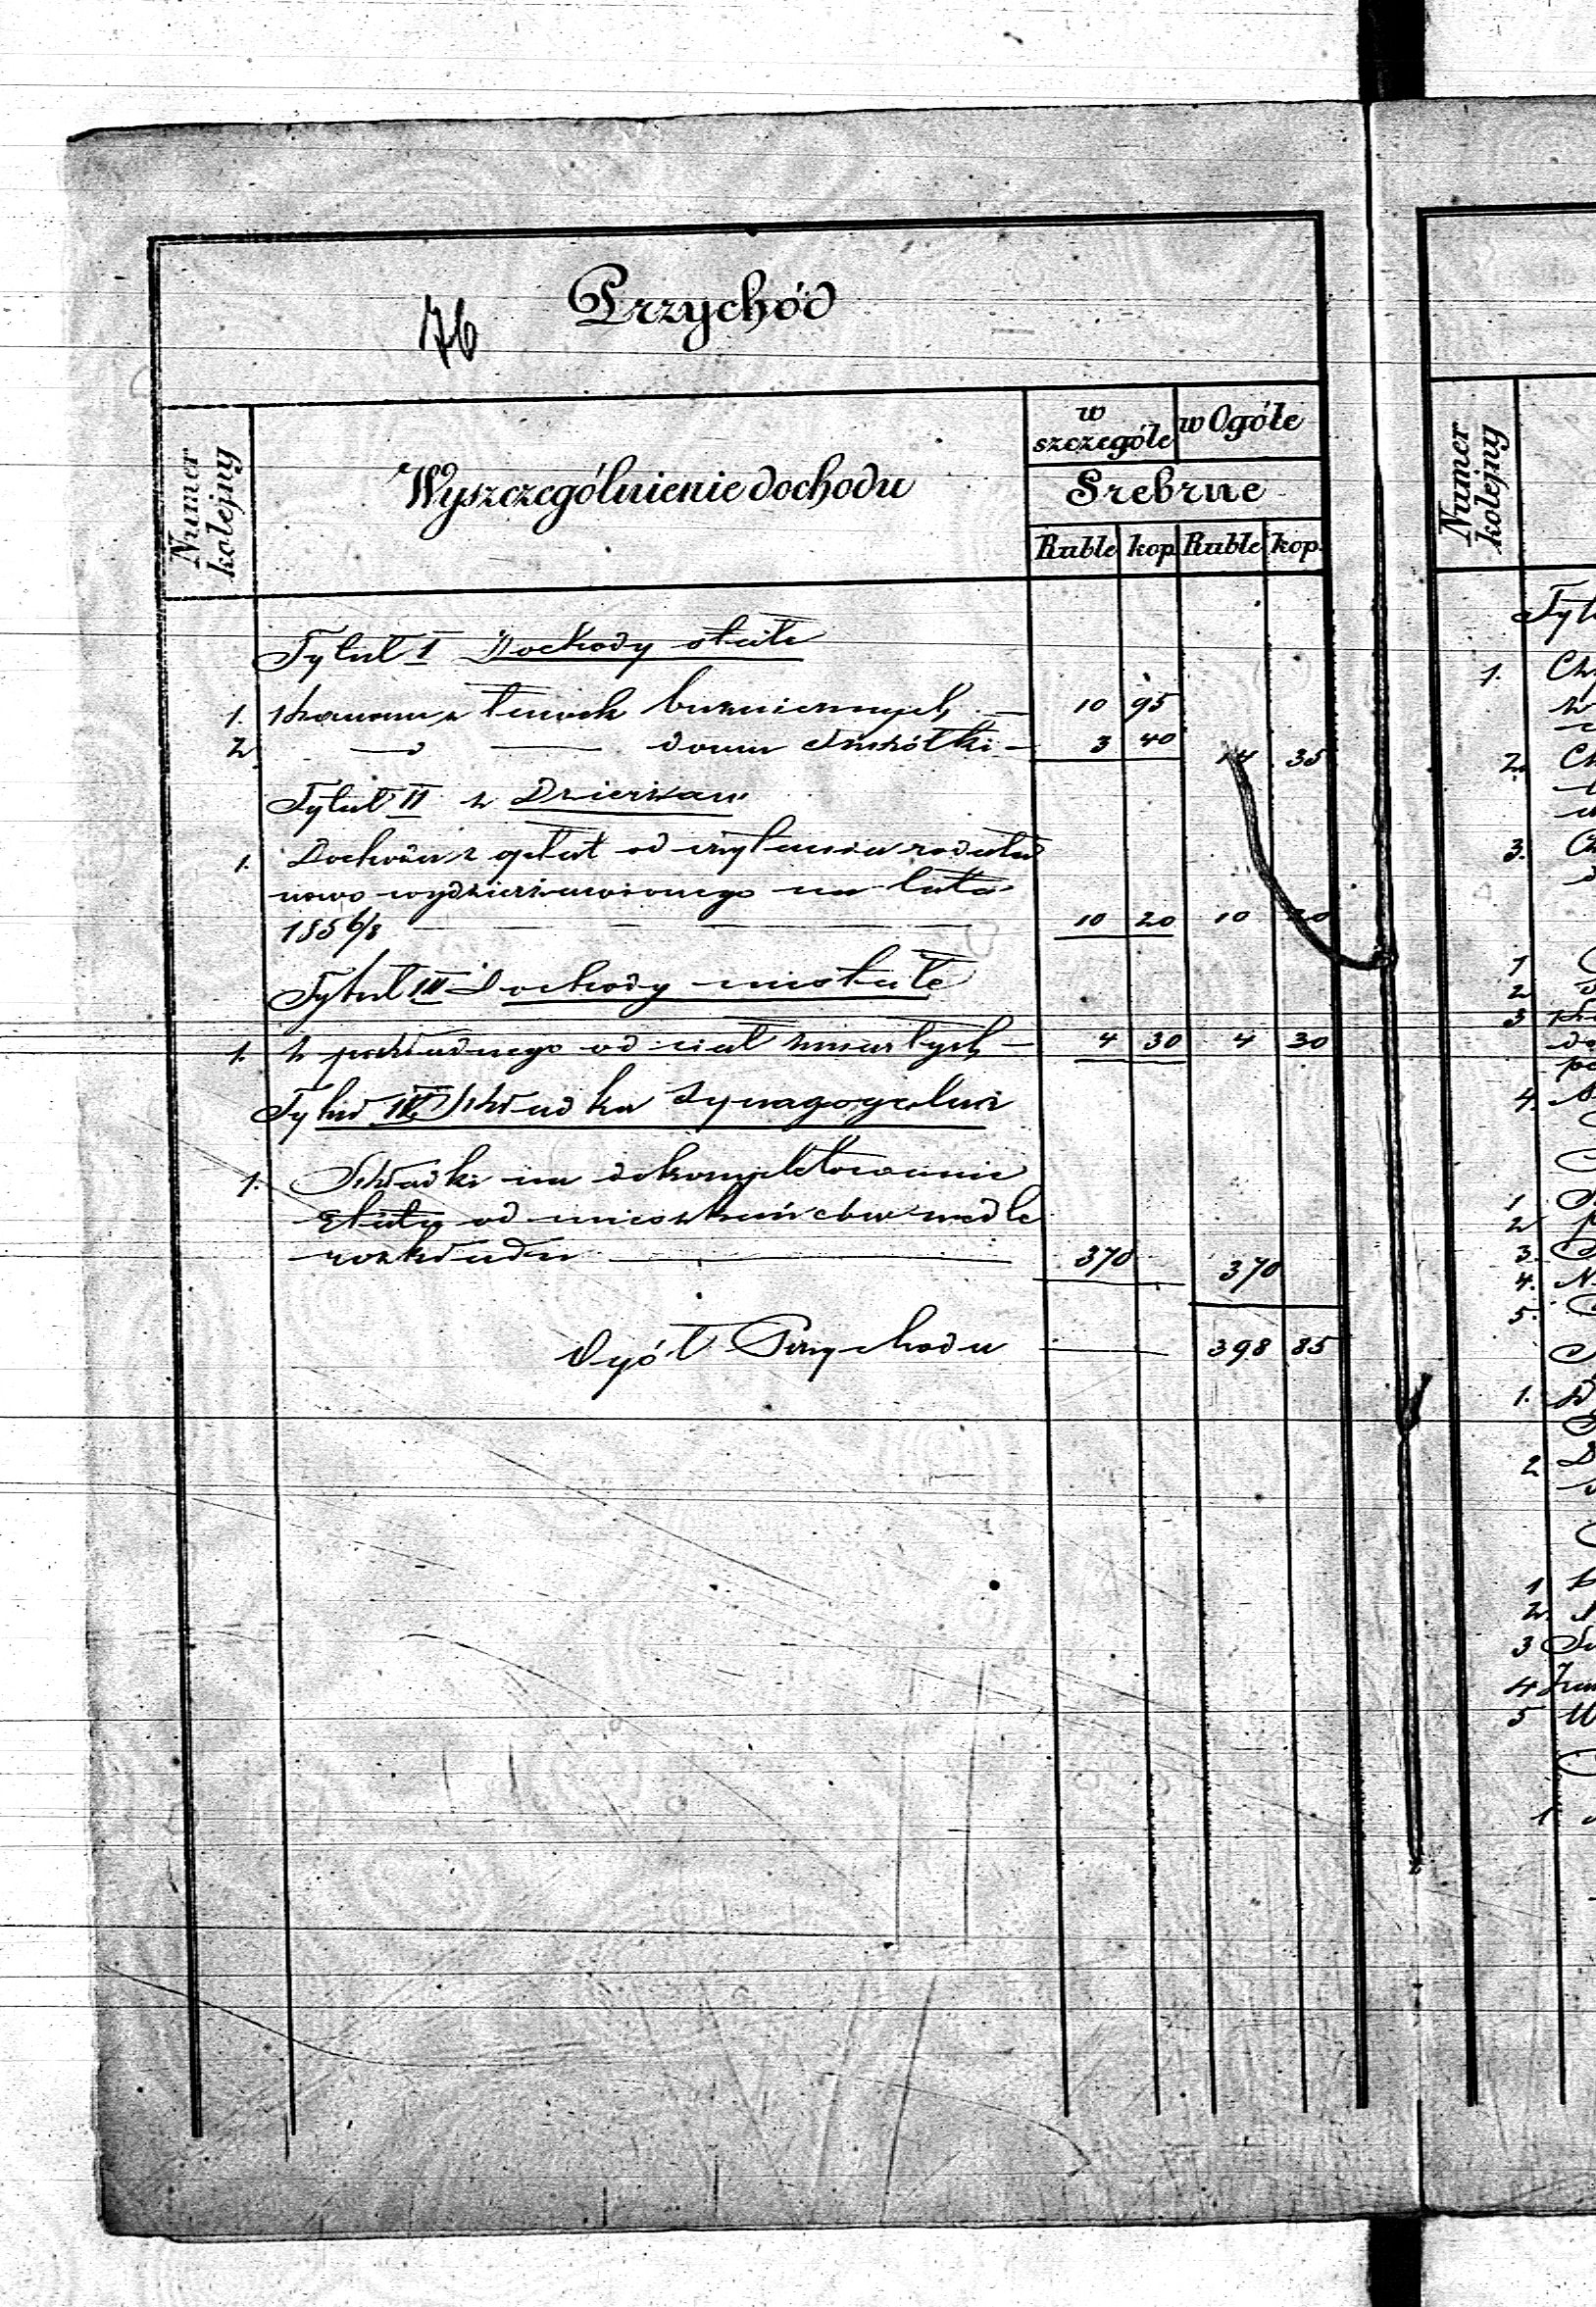 Przychód
76
Numer kolejny
Wyszczególnienie dochodu
w szczególe
w Ogóle
Srebrne
Ruble kop Ruble kop.
Tytuł I Dochody stałe
1. z ławek bużnicznych — 10 95
2 — " — domu — 3 40 14 35
Tytuł II z Dzierżaw
1. Dochodu z opłat od czytania rodału
nowo wydzierżawionego na lata
185 6/8 — 10 20 10 20
Tytuł III Dochody niestałe
1. Z pokładnego od ciał zmarłych — 4 30 4 30
Tytuł IV Składka Synagogalna
1. Składki na dokompletowanie
Etatu od mieszkańców wedle
rozkładu — 370 370
Ogół Przychodu — 398 85
Numer kolejny
1.
2.
3.
1
2
3
4.
1
2
3.
4.
5.
1.
2
1
2.
3
4
5
1